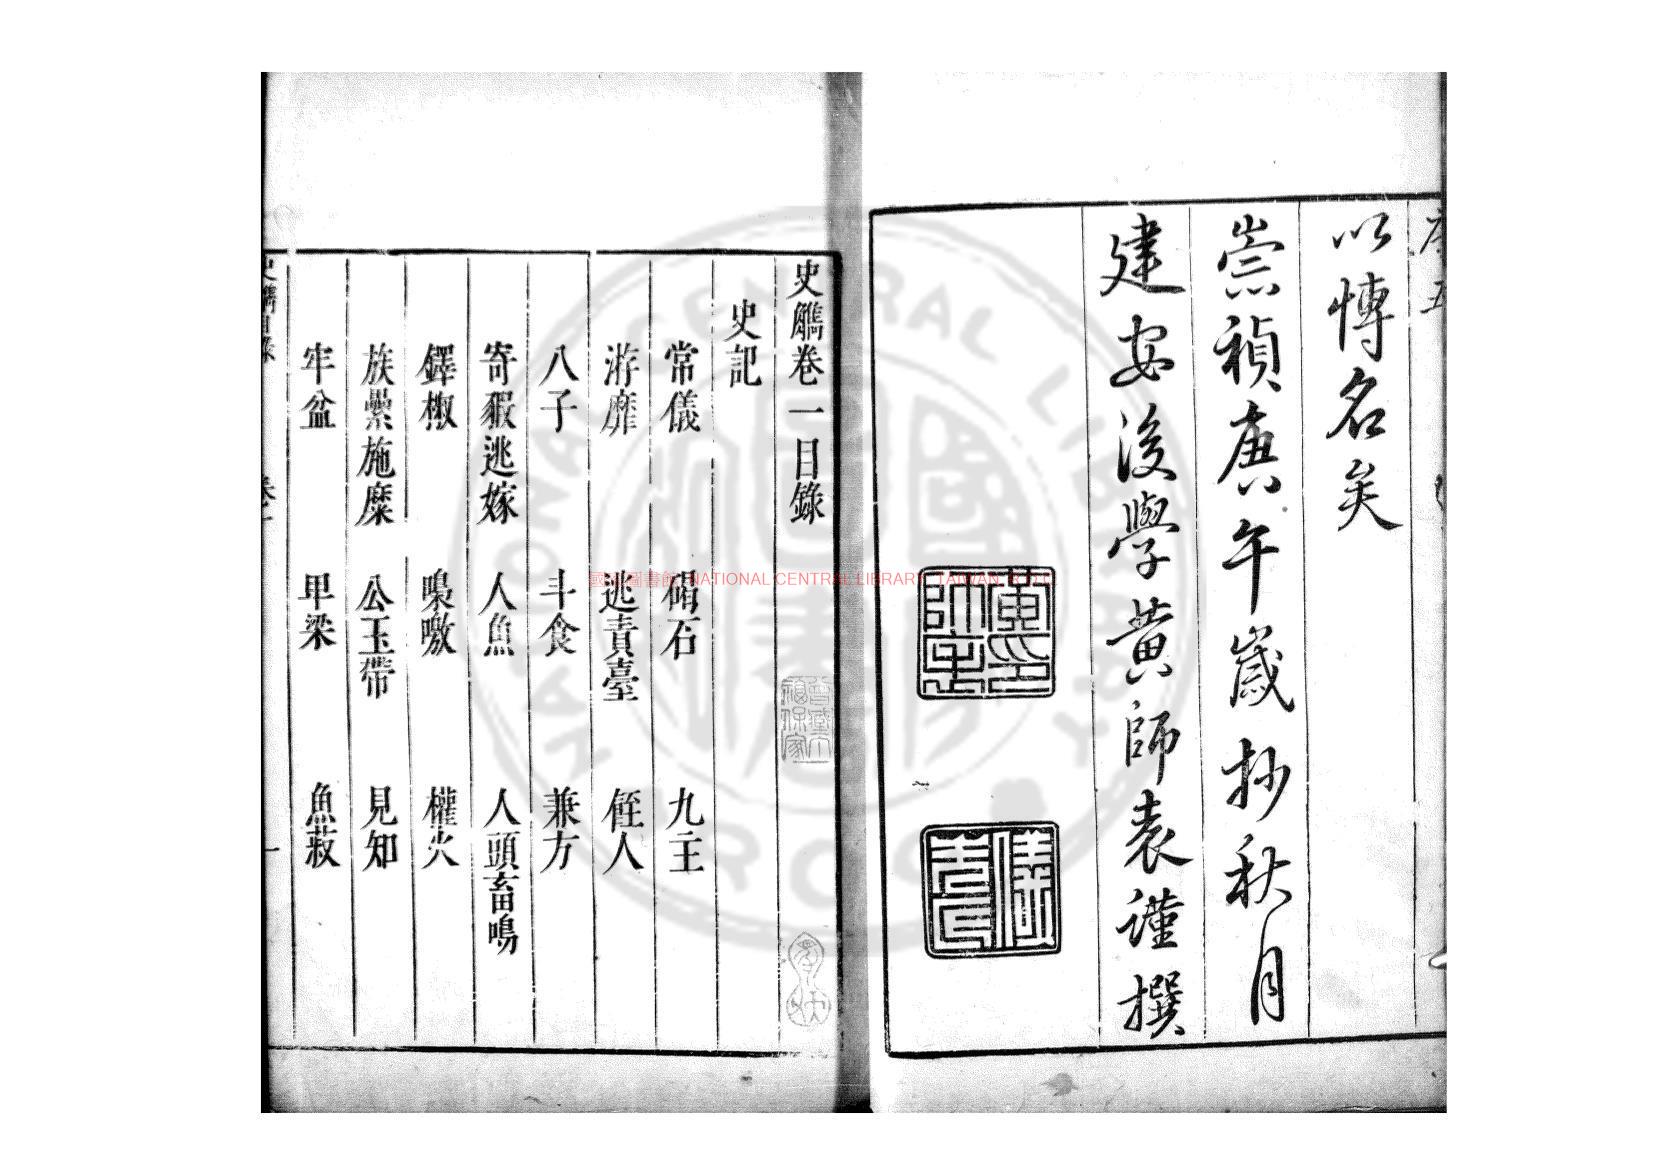 以慱名矣
崇禎庚午歲抄秋月
建安後學黃師表謹撰
史觿卷一目錄
史記
常儀 碣石 九主
游靡 逃責臺 俇人
八子 斗食 兼方
寄豭逃嫁 人魚 人頭畜鳴
鐸椒 嘄噭 權火
族纍施糜 公玉帶 見知
牢盆 甲梁 魚菽
國家圖書館 NATIONAL CENTRAL LIBRARY, TAIWAN, R.O.C
NATIONAL CENTRAL LIBRARY